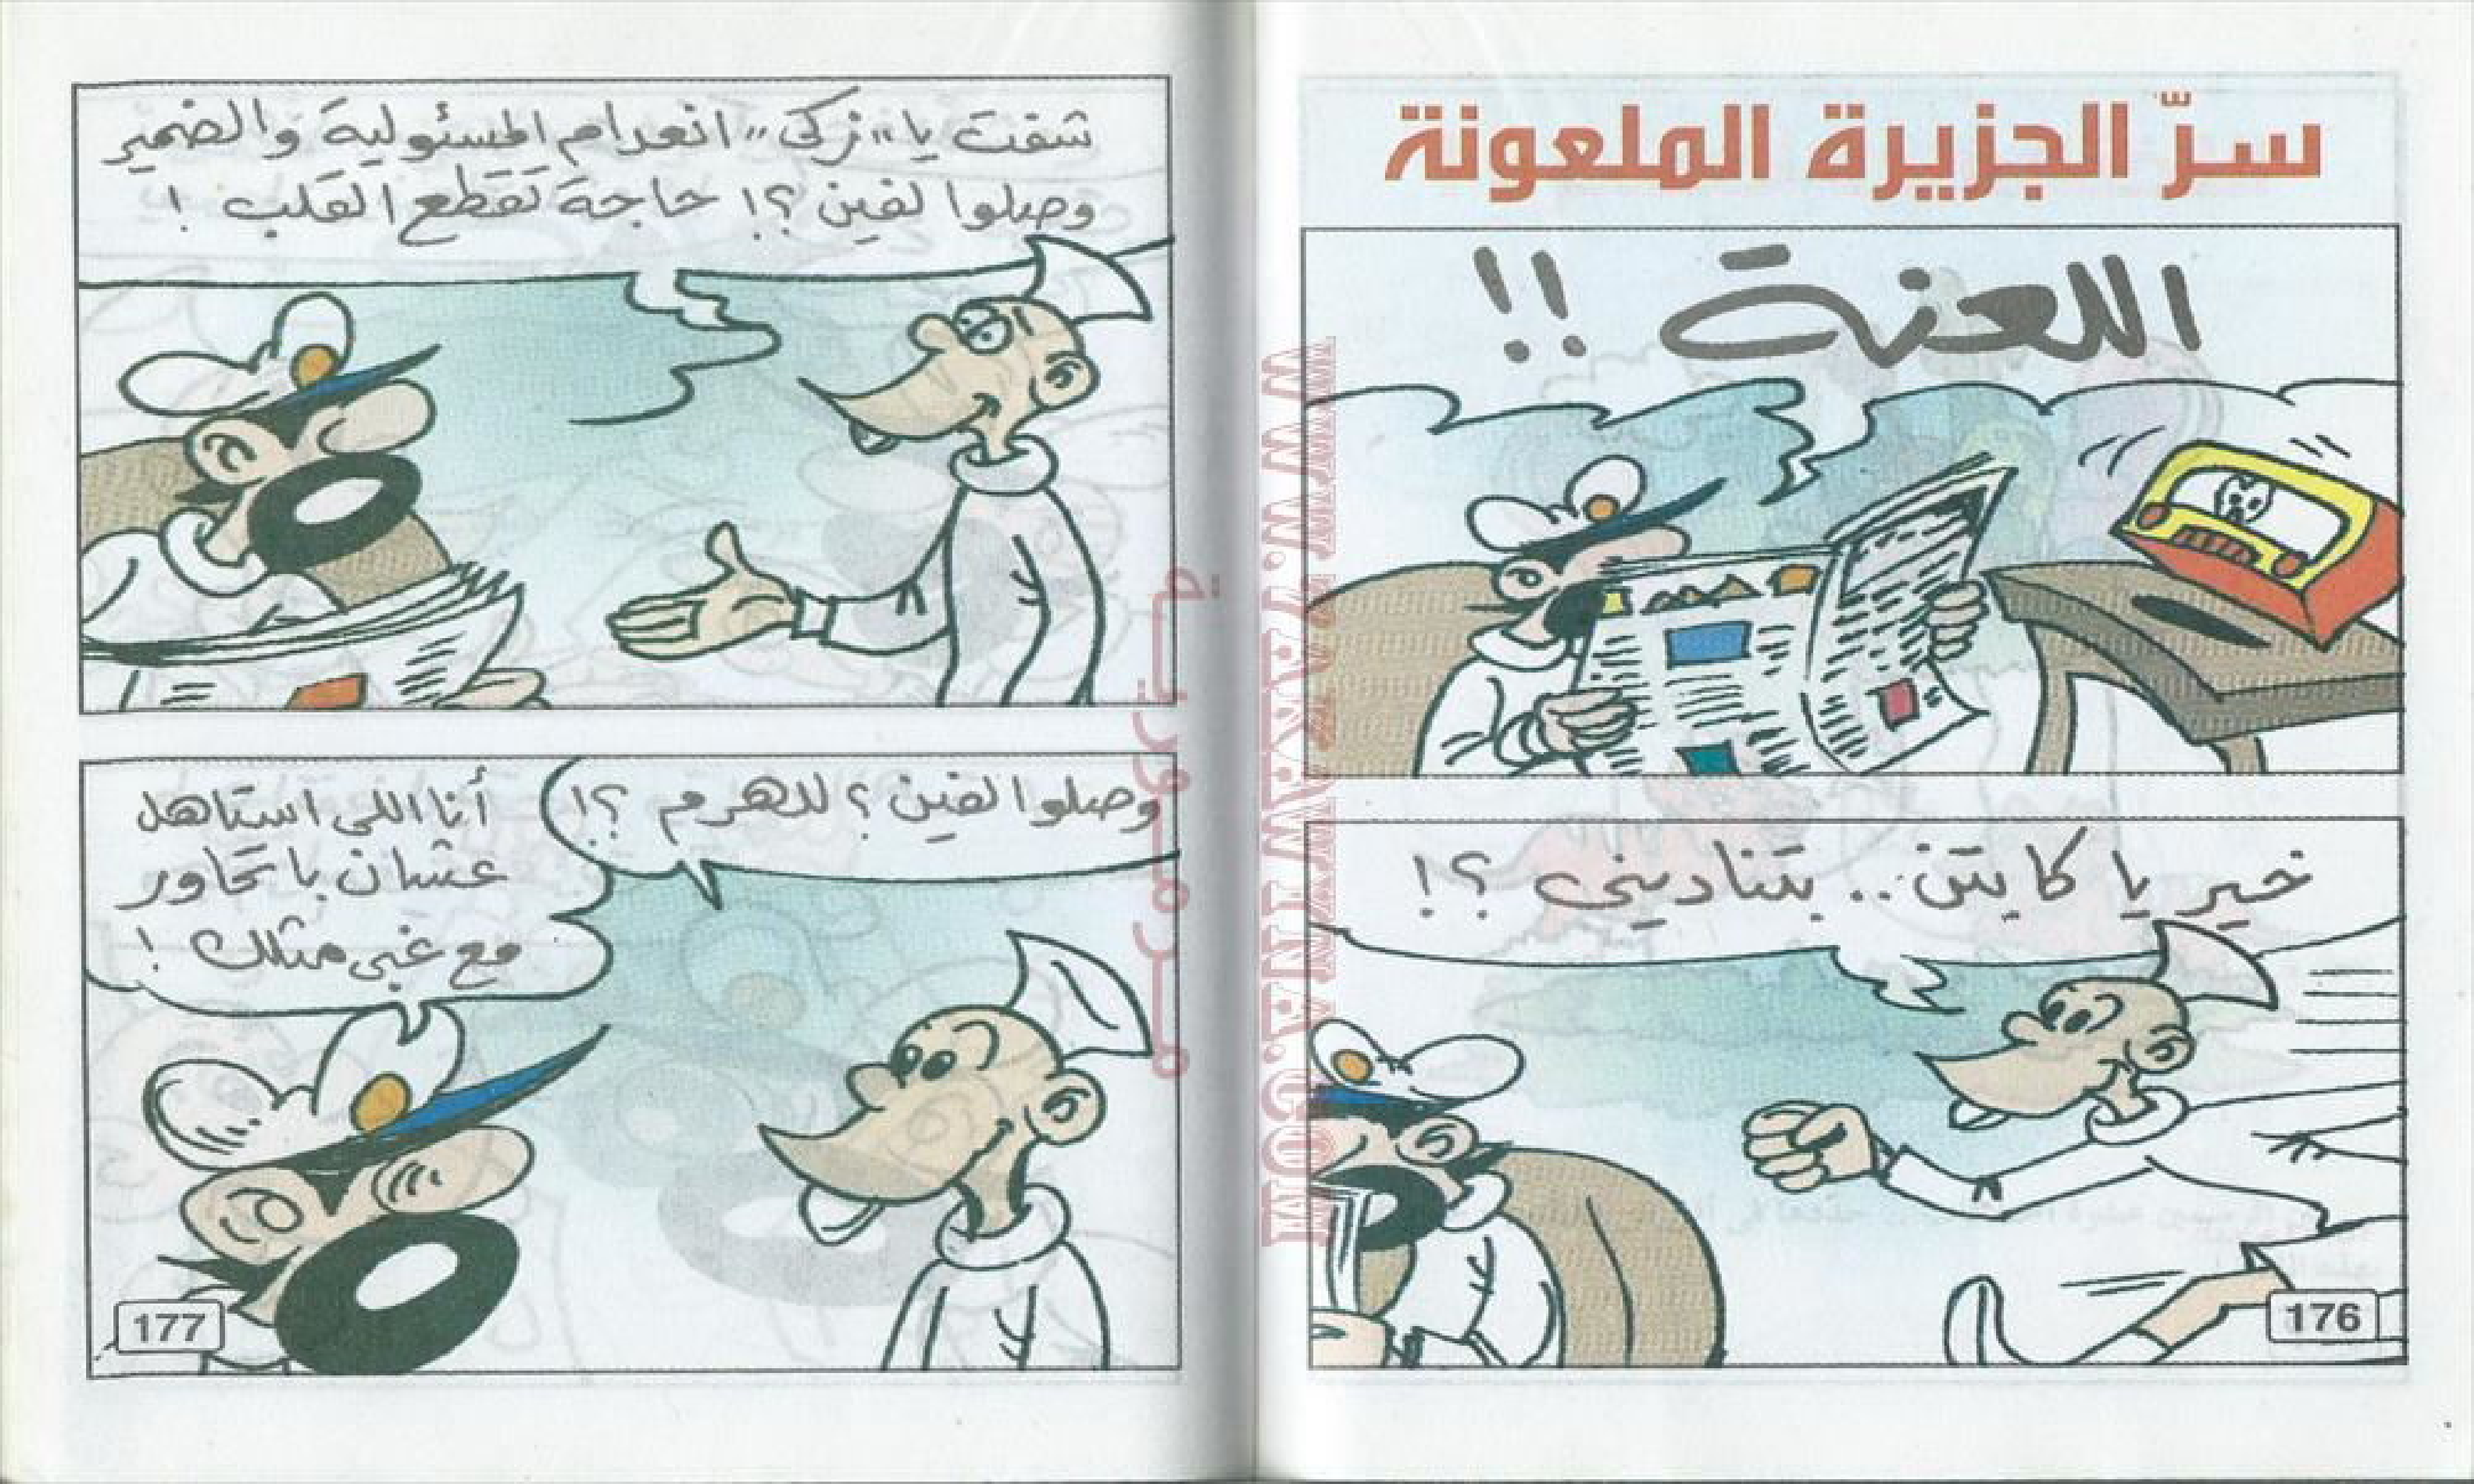 سرّ الجزيرة الملعونة
اللعنة !!
خير يا كابتن.. بتناديني ؟!
176
شفت يا "زكى" انعدام المسئولية والضمير
وصلوا لفين ؟! حاجة تقطع القلب !
وصلوا لفين ؟ للهرم ؟!
أنا اللي استاهل
عشان باتحاور
مع غبي مثلك !
177
WWW.ARABCOMICS